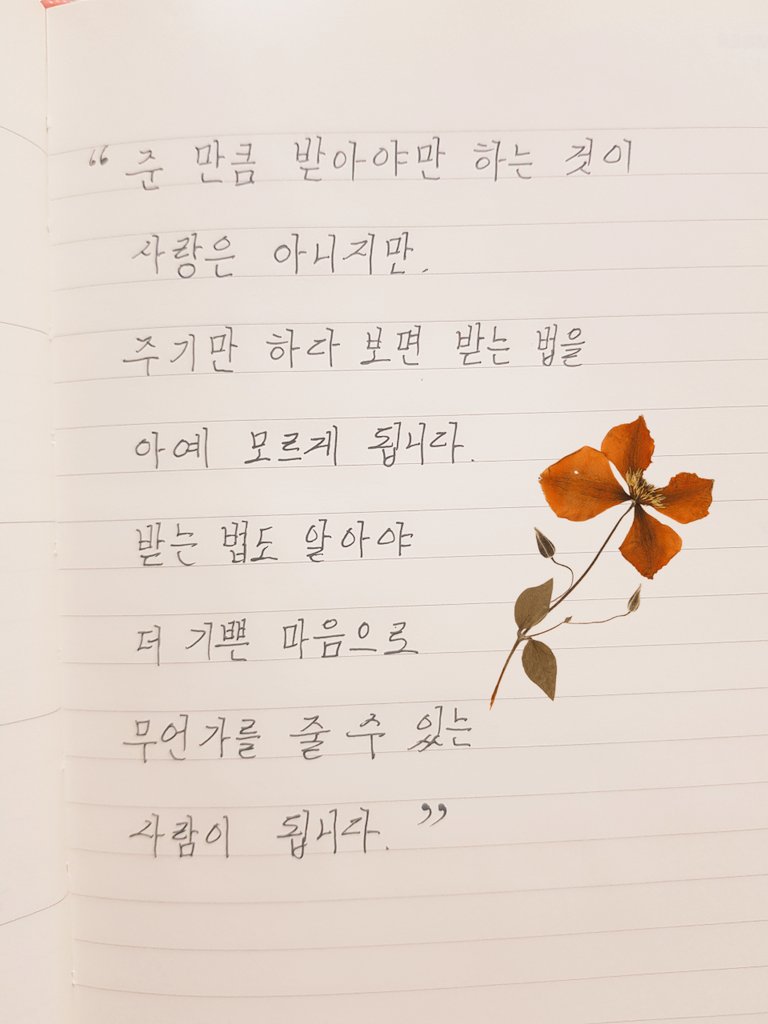 “ 준 만큼 받아야만 하는 것이
사랑은 아니지만.
주기만 하다 보면 받는 법을
아예 모르게 됩니다.
받는 법도 알아야
더 기쁜 마음으로
무언가를 줄 수 있는
사람이 됩니다. ”